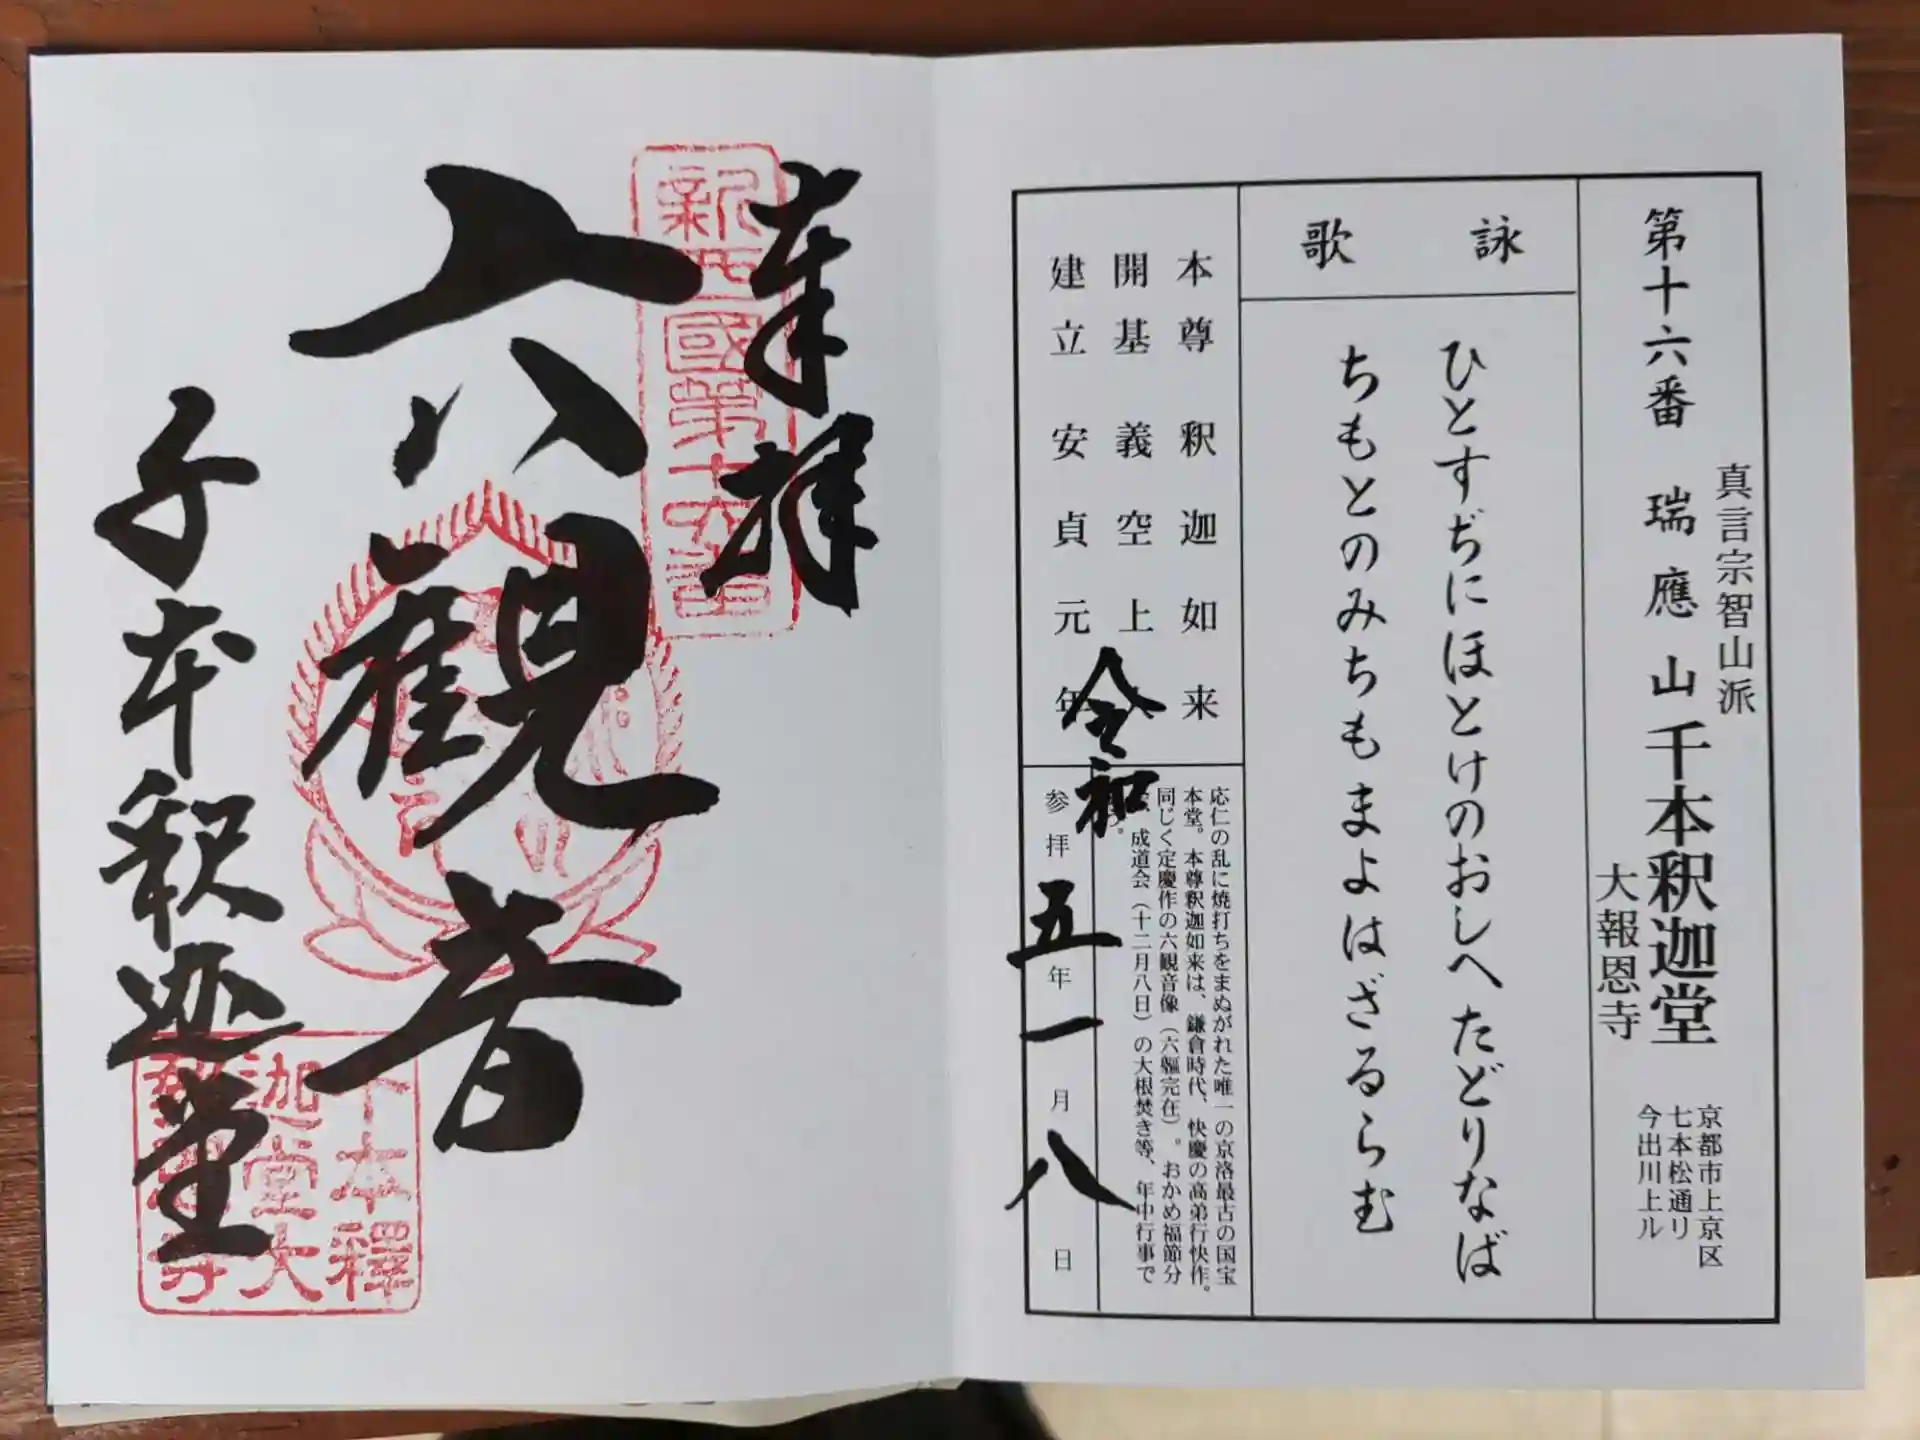 第十六番 瑞應山 千本釈迦堂
真言宗智山派
大報恩寺
京都市上京区
七本松通リ
今出川上ル
詠歌
ひとすぢにほとけのおしへたどりなば
ちもとのみちもまよはざるらむ
本尊 釈迦如来
開基 義空上
建立 安貞元年
応仁の乱に焼打ちをまぬがれた唯一の京洛最古の国宝
本堂。本尊釈迦如来は、鎌倉時代、快慶の高弟行快作。
同じく定慶作の六観音像(六軀完在)。おかめ福節分
成道会(十二月八日)の大根焚き等、年中行事で
参拝 令和五年一月八日
奉拝
新西國第十六番
六観音
千本釈迦堂
千本釋迦堂大報恩寺